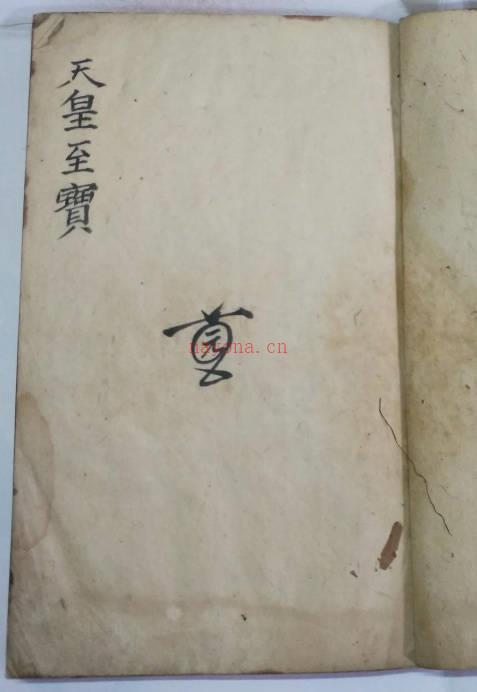 天皇至寶
nayona.cn